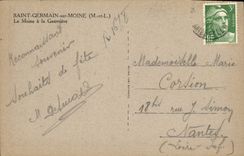 SAINT-GERMAIN-sur-MOINE (M.-et-L.)
Le Moine à la Garnière
Reconnaissant
souvenir
Souhaits de fête
Mademoiselle Marie
18 rue J. Simon
Nantes
(Loire Inf.)